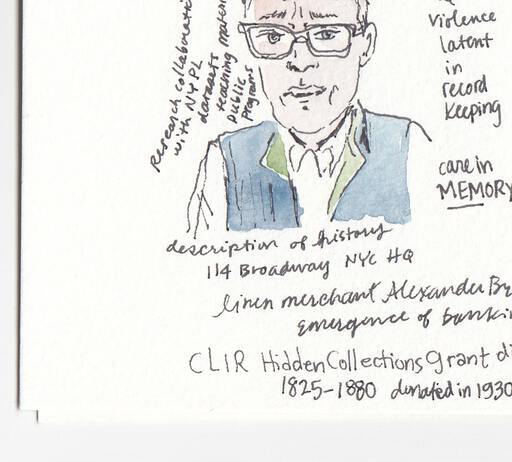 Research collaboratio
with NYPL
datasets
teaching mater
public
Programs
violence
latent
in
record
keeping
care in
MEMORY
description of history
114 Broadway NYC HQ
linen merchant Alexander Br
emergence of bankin
CLIR Hidden Collections grant di
1825-1880 donated in 1930